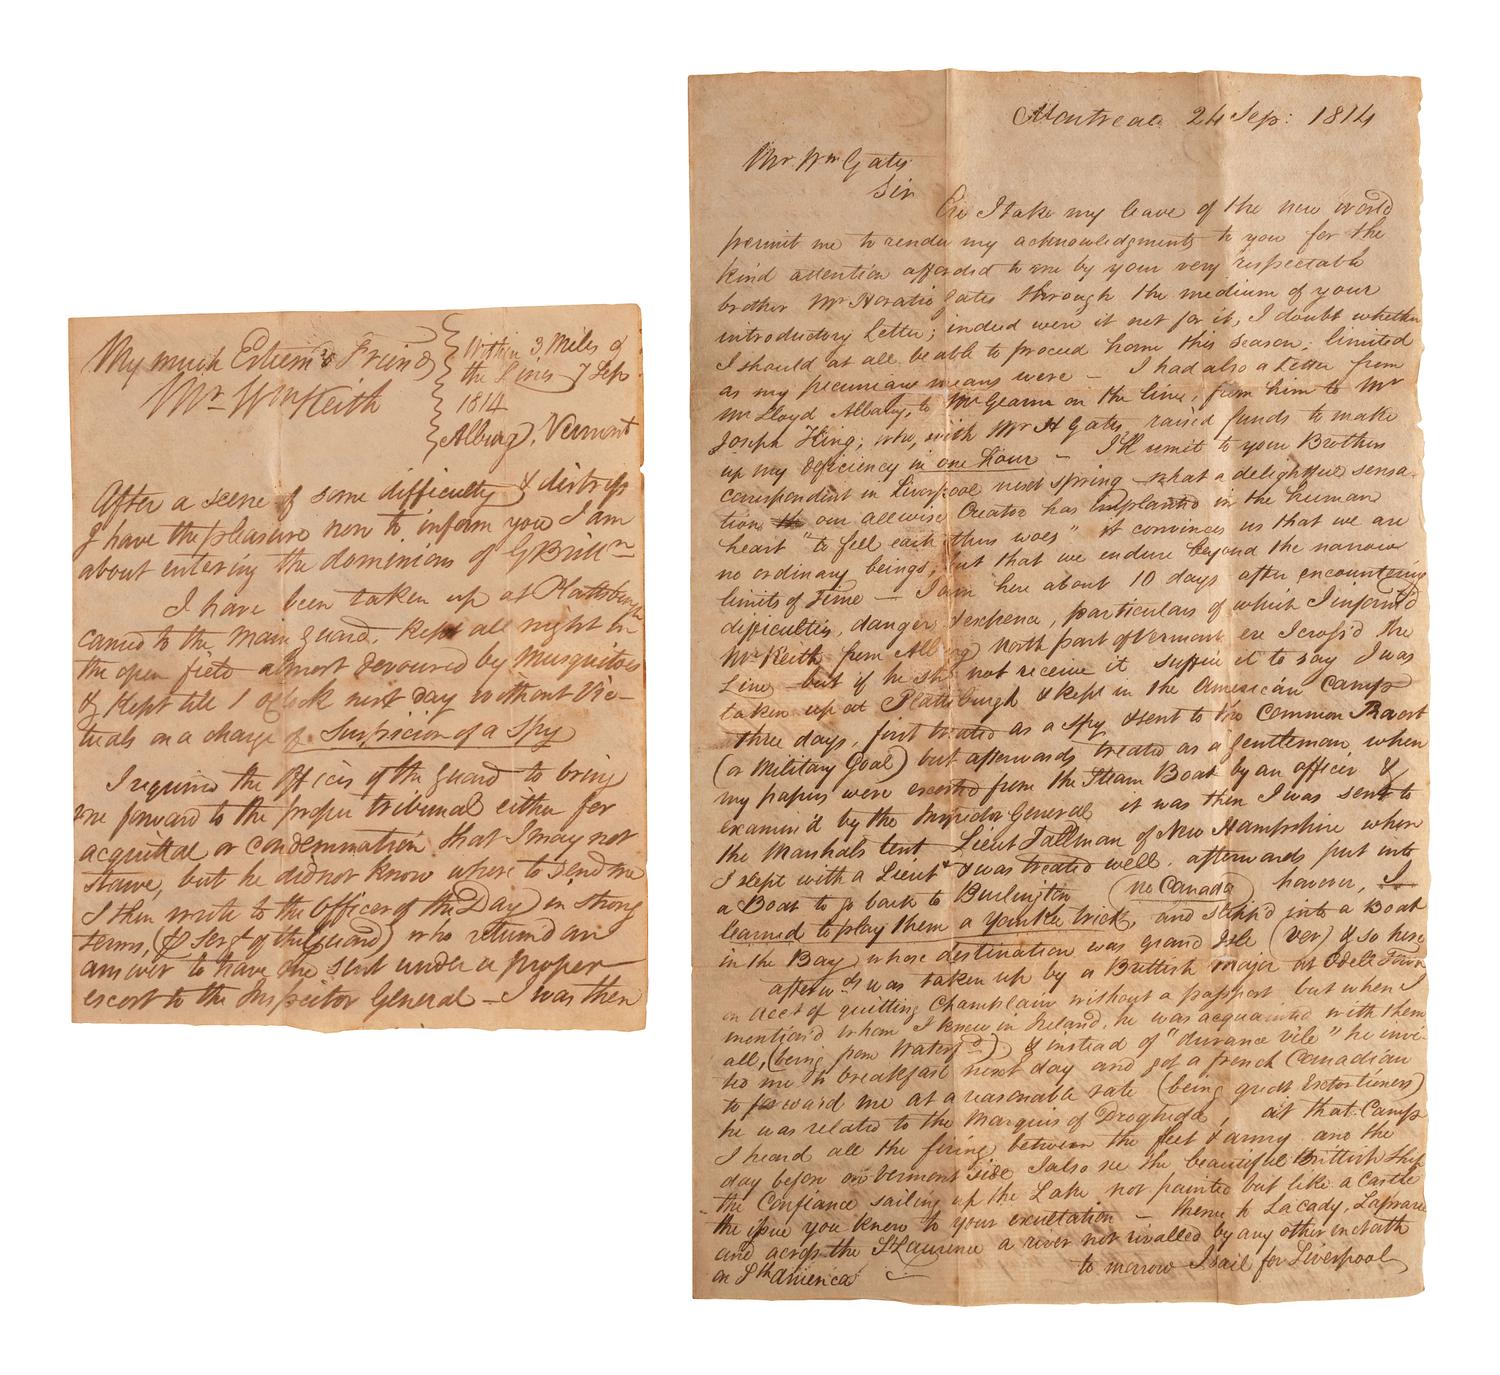 My much Esteem'd Freind
Mr Wm Keith
Within 3 Miles of
the Lines 7 Sep
1814
Alburg, Vermont
After a scene of some difficulty & distress
I have the pleasure now to inform you I am
about entering the dominions of G Britn
I have been taken up at Plattsburgh
carried to the main guard, kept all night in
the open field almost devoured by Musquitos
& kept till 1 oClock next day without Vic-
tuals on a charge of Suspicion of a Spy
I required the Officer of the Guard to bring
me forward to the proper tribunal either for
acquittal or condemnation that I may not
starve, but he did not know where to send me
I then wrote to the Officer of the Day in strong
terms, (& Sergt of the guard) who return'd an
answer to have me sent under a proper
escort to the Inspector General - I was then
Montreal 24 Sep: 1814
Mr Wm Gates
Sir
Ere I take my leave of the new world
permit me to render my acknowledgments to you for the
kind attention afforded to me by your very respectable
brother Mr Horatio Gates through the medium of your
introductory Letter; indeed were it not for it, I doubt whether
I should at all be able to proceed home this season, limited
as my pecuniary means were - I had also a Letter from
Mr Lloyd Albany, to Mr on the line, from him to Mr
Joseph King, who, with Mr H Gates, raised funds to make
up my deficiency in one hour - I'll remit to your Brothers
correspondent in Liverpool next spring - what a delightful sensa-
tion our allwise Creator has implanted in the human
heart "to feel each others woes" it convinces us that we are
no ordinary beings, but that we endure beyond the narrow
limits of Time - I am here about 10 days after encountering
difficulties, danger & expence, particulars of which I inform'd
Mr Keith from Alburg north part of Vermont ere I cross'd the
Line - but if he shd not receive it suffice it to say I was
taken up at Plattsburgh & kept in the American Camp
three days, first treated as a spy & sent to the Common Provost
(or Military Goal) but afterwards treated as a gentleman, when
my papers were escorted from the Steam Boat by an officer &
examin'd by the Inspector General it was then I was sent to
the Marshals tent Lieut Tallman of New Hampshire where
I slept with a Lieut & was treated well. afterwards put into
a Boat to go back to Burlington (no Canada) however, I
learned to play them a Yankee trick, and slipp'd into a Boat
in the Bay whose destination was grand Isle (Ver) & so here
afterwds was taken up by a Brittish major at Odell Town
on acct of quitting Champlain without a passport but when I
mention'd whom I knew in Ireland, he was acquainted with them
all, (being from Waterfd) & instead of "durance vile" he invi-
ted me to breakfast next day and got a french Canadian
to forward me at a reasonable rate (being great Extortioners)
he was related to the Marquis of Drogheda, at that Camp
I heard all the firing between the fleet & army and the
day before on Vermont side I also see the beautiful Brittish ship
the Confiance sailing up the Lake not painted but like a Castle
the issue you know to your exultation - thence to Lacady, Laprarie
and across the St Laurence a river not rivalled by any other in
on Sth America to morrow I sail for Liverpool